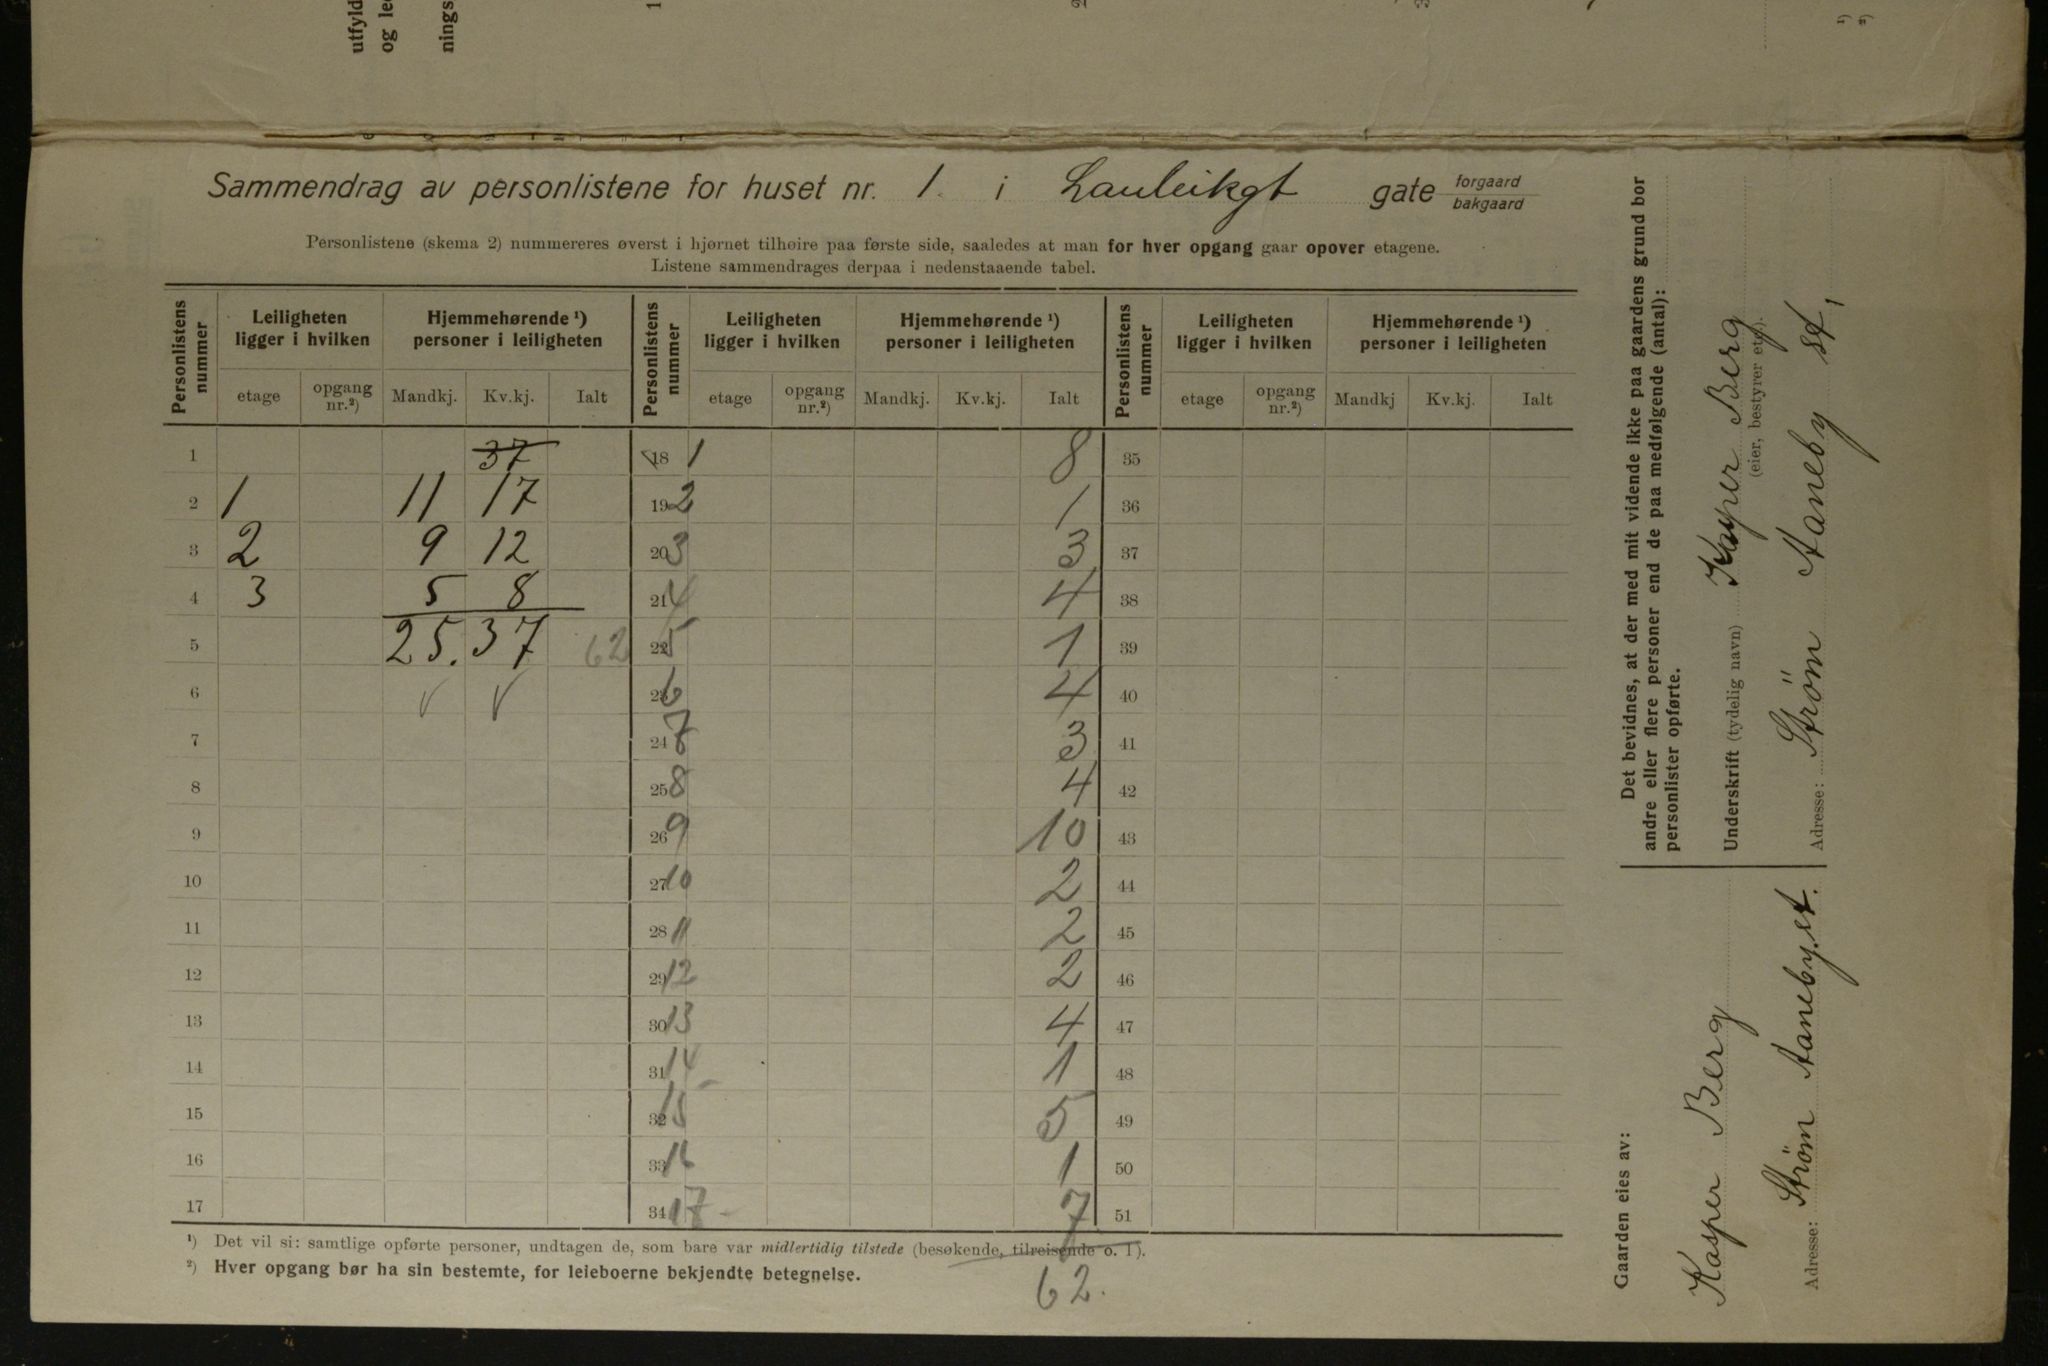 utfyld
og le
nings
1
2
3
¹)
²)
Sammendrag av personlistene for huset nr. 1. i Lauleikgt gate forgaard bakgaard
Personlistene (skema 2) nummereres øverst i hjørnet tilhøire paa første side, saaledes at man for hver opgang gaar opover etagene.
Listene sammendrages derpaa i nedenstaaende tabel.
Personlistens nummer | Leiligheten ligger i hvilken | Hjemmehørende ¹) personer i leiligheten | Personlistens nummer | Leiligheten ligger i hvilken | Hjemmehørende ¹) personer i leiligheten | Personlistens nummer | Leiligheten ligger i hvilken | Hjemmehørende ¹) personer i leiligheten
etage | opgang nr.²) | Mandkj. | Kv.kj. | Ialt | etage | opgang nr.²) | Mandkj. | Kv.kj. | Ialt | etage | opgang nr.²) | Mandkj | Kv.kj. | Ialt
1 37 18 1 8 35
2 1 11 17 19 2 1 36
3 2 9 12 20 3 3 37
4 3 5 8 21 4 4 38
5 25. 37 62 22 5 1 39
6 √ √ 23 6 4 40
7 24 7 3 41
8 25 8 4 42
9 26 9 10 43
10 27 10 2 44
11 28 11 2 45
12 29 12 2 46
13 30 13 4 47
14 31 14 1 48
15 32 15 5 49
16 33 16 1 50
17 34 17 7 51
¹) Det vil si: samtlige opførte personer, undtagen de, som bare var midlertidig tilstede (besøkende, tilreisende o. l).
²) Hver opgang bør ha sin bestemte, for leieboerne bekjendte betegnelse.
62.
Det bevidnes, at der med mit vidende ikke paa gaardens grund bor
andre eller flere personer end de paa medfølgende (antal):
personlister opførte.
Underskrift (tydelig navn) Kasper Berg
(eier, bestyrer etc.).
Adresse: Strøm Aaneby st,
Gaarden eies av:
Kasper Berg
Adresse: Strøm Aaneby.st.